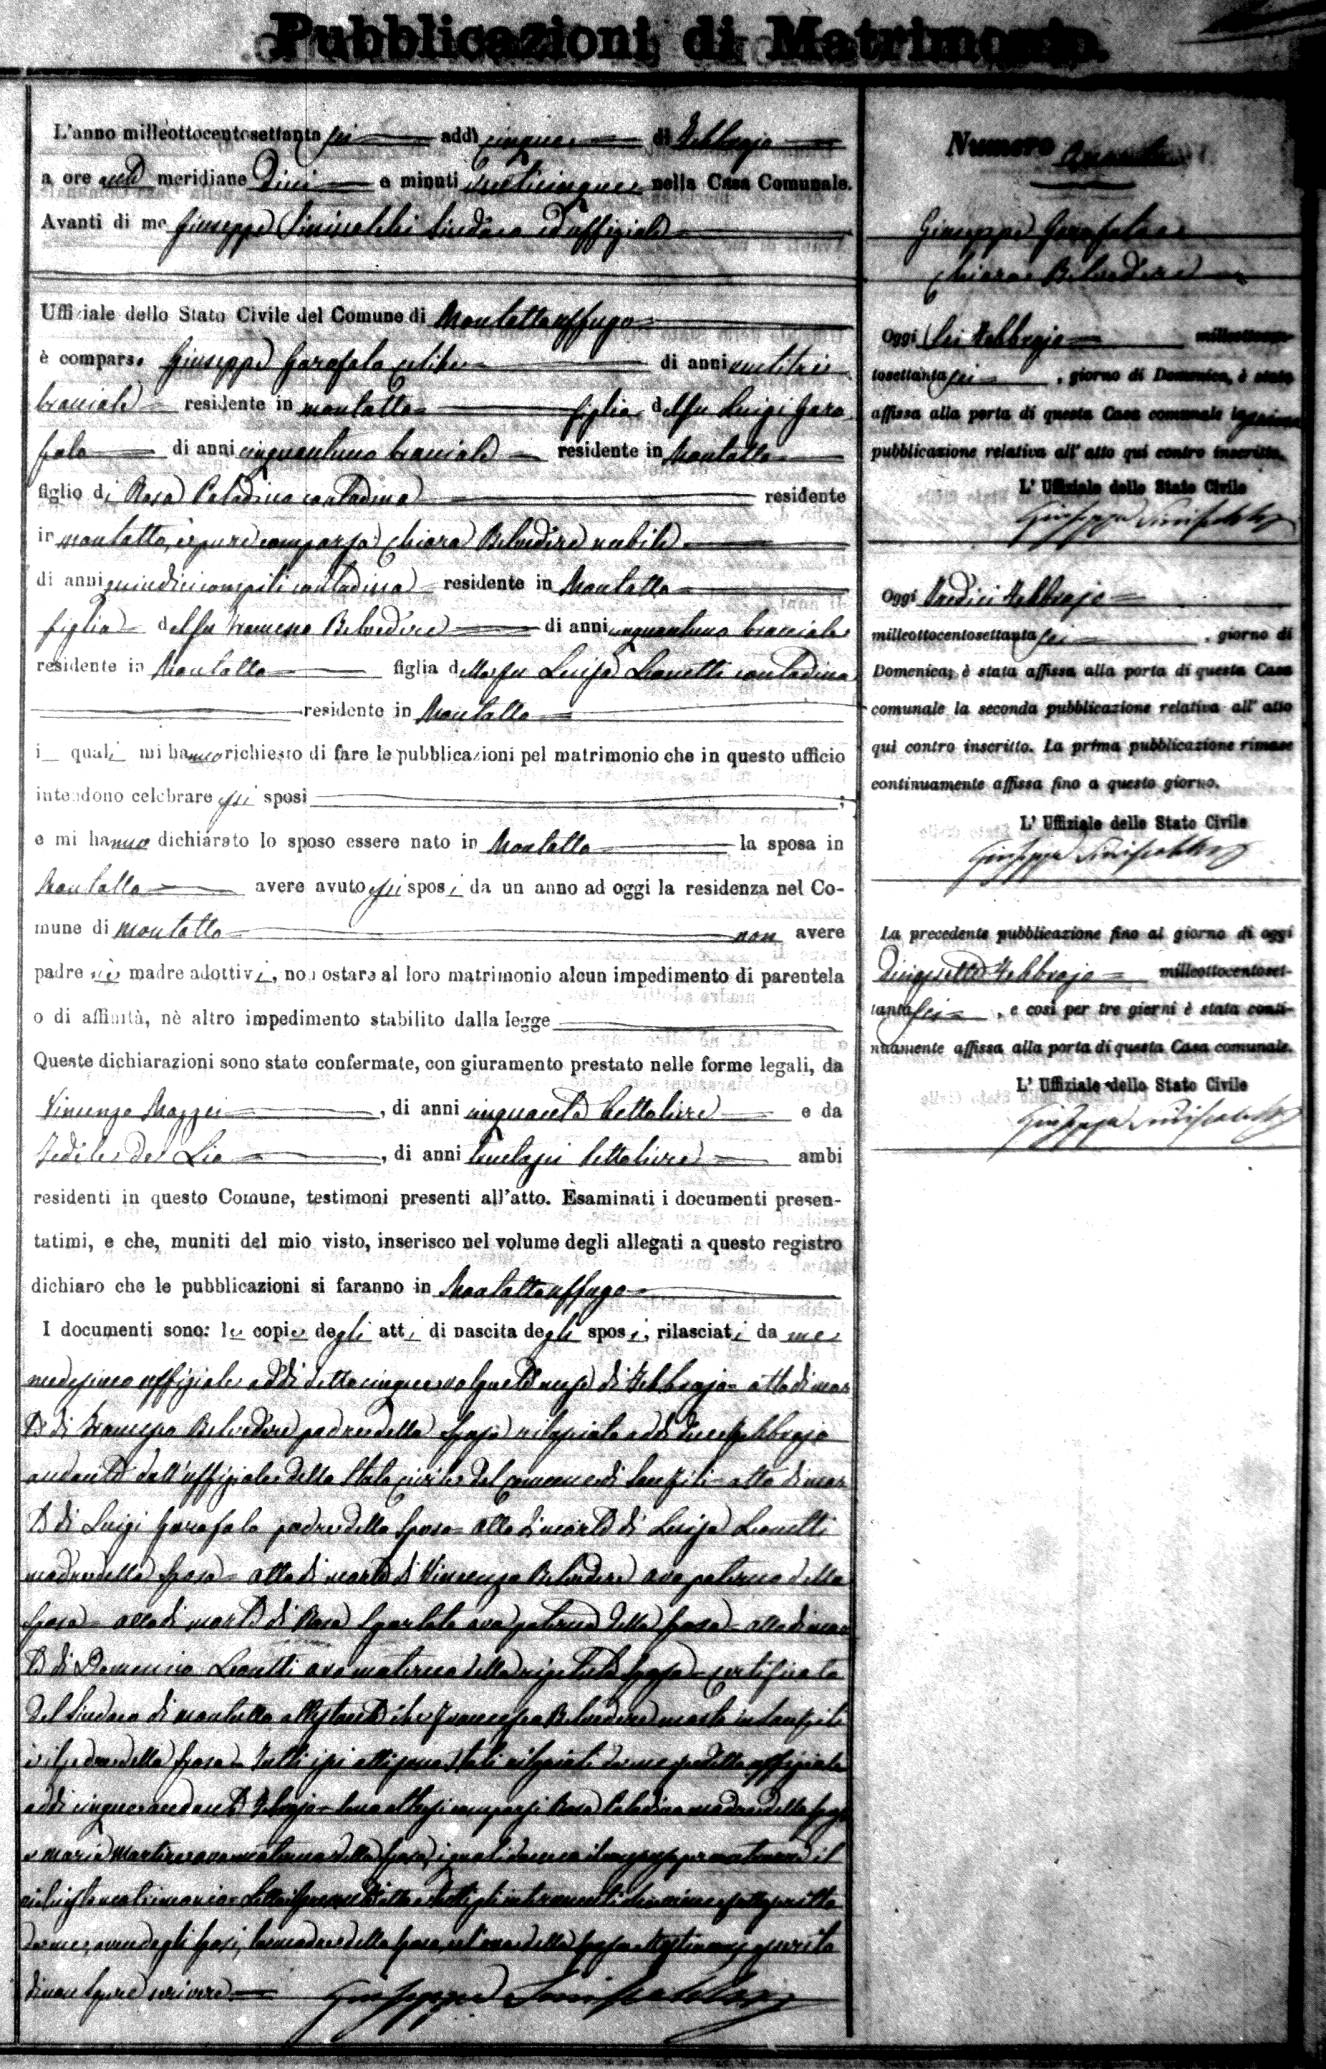 Pubblicazioni di Matrimonio.
L'anno milleottocentosettanta sei addì cinque di Febbrajo
a ore anti meridiane Dieci e minuti venticinque nella Casa Comunale.
Avanti di me Giuseppe Sinisalchi Sindaco ed uffiziale
Uffiziale dello Stato Civile del Comune di Montaltouffugo
è comparso Giuseppe Garofalo celibe di anni ventitrè
bracciale residente in Montalto figlio del fu Luigi Garo
falo di anni cinquantuno bracciale residente in Montalto
figlio di Rosa Paladina contadina residente
in Montalto, è pure comparsa Chiara Belvedere nubile
di anni quindici compiti contadina residente in Montalto
figlia del fu Francesco Belvedere di anni cinquantuno bracciale
residente in Montalto figlia della fu Luisa Leonetti contadina
residente in Montalto
i quali mi hanno richiesto di fare le pubblicazioni pel matrimonio che in questo ufficio
intendono celebrare essi sposi ;
e mi hanno dichiarato lo sposo essere nato in Montalto la sposa in
Montalto avere avuto essi sposi da un anno ad oggi la residenza nel Co-
mune di Montalto non avere
padre nè madre adottivi, non ostare al loro matrimonio alcun impedimento di parentela
o di affinità, nè altro impedimento stabilito dalla legge
Queste dichiarazioni sono state confermate, con giuramento prestato nelle forme legali, da
Vincenzo Mazzei , di anni cinquanta bettoliere e da
Fedele de Lio , di anni bettoliere ambi
residenti in questo Comune, testimoni presenti all'atto. Esaminati i documenti presen-
tatimi, e che, muniti del mio visto, inserisco nel volume degli allegati a questo registro
dichiaro che le pubblicazioni si faranno in Montaltouffugo
I documenti sono: le copie degli atti di nascita degli sposi, rilasciati da me
medesimo uffiziale addì detto cinque volgente mese di Febbrajo atto di mor
te di Francesco Belvedere padre della sposa rilasciato addì due Febbrajo
andante dall'uffiziale dello Stato civile del Comune di Sanfili atto di mor
te di Luigi Garofalo padre dello sposo atto di morte di Luisa Leonetti
madre della sposa atto di morte di Vincenzo Belvedere avo paterno della
sposa atto di morte di Rosa ava paterna della sposa atto di mor
te di Domenico Leonetti avo materno della ripetuta sposa certificato
del Sindaco di Montalto attestante che Francesco Belvedere morto in Sanfili
è il padre della sposa Tutti essi atti sono stati rilasciati da me predetto uffiziale
addì cinque andante Febrajo sono altresì comparsi Rosa Paladina madre dello sposo
e Maria Martire ava materna della sposa, i quali danno il consenso
matrimonio Letto il presente atto a tutti gli intervenuti
da me, avendo gli sposi, la madre dello sposo, e l'ava della sposa
di non sapere scrivere
Giuseppe Sinisalchi
Numero
Giuseppe Garofalo e
Chiara Belvedere
Oggi Sei Febbrajo milleottocen-
tosettanta sei , giorno di Domenica, è stata
affissa alla porta di questa Casa comunale la prima
pubblicazione relativa all' atto qui contro inscritto.
L' Uffiziale dello Stato Civile
Giuseppe Sinisalchi
Oggi tredici Febbrajo
milleottocentosettanta sei , giorno di
Domenica, è stata affissa alla porta di questa Casa
comunale la seconda pubblicazione relativa all' atto
qui contro inscritto. La prima pubblicazione rimase
continuamente affissa fino a questo giorno.
L' Uffiziale dello Stato Civile
Giuseppe Sinisalchi
La precedente pubblicazione fino al giorno di oggi
diciassette Febbrajo milleottocentoset-
tanta sei , e così per tre giorni è stata conti-
nuamente affissa alla porta di questa Casa comunale.
L' Uffiziale dello Stato Civile
Giuseppe Sinisalchi